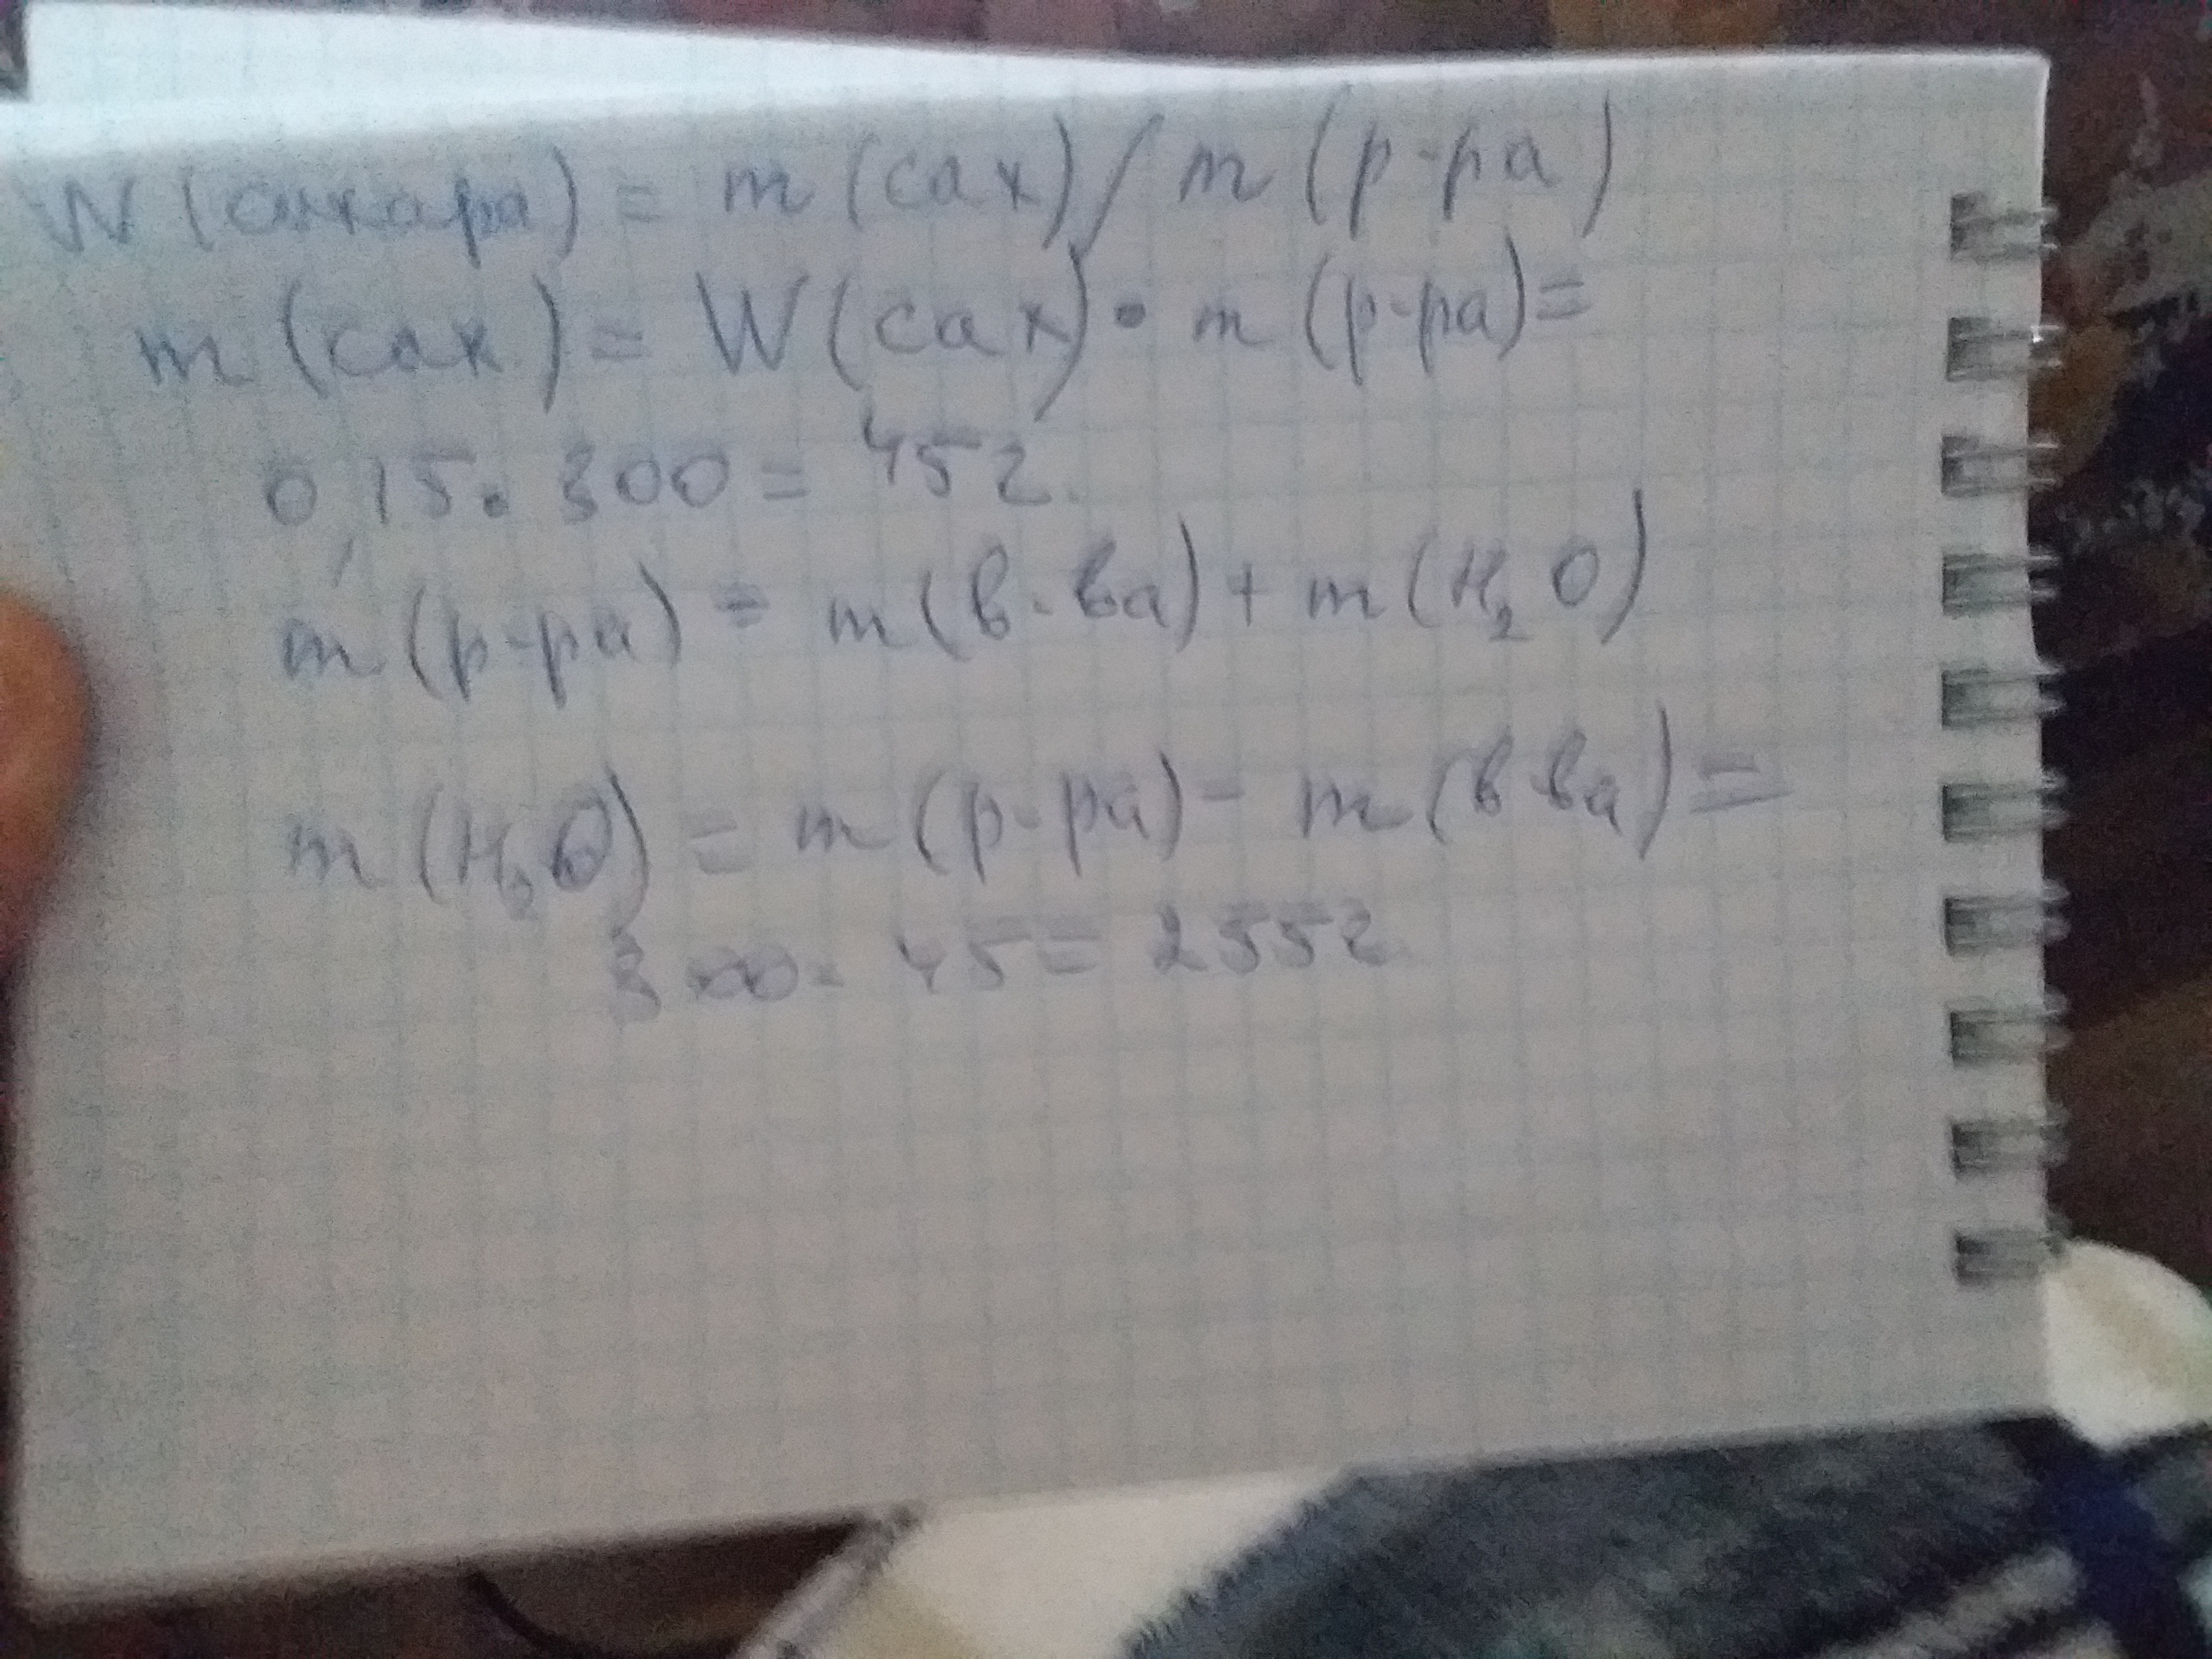 W (сахара) = m (сах) / m (р-ра)
m (сах) = W (сах) • m (р-ра) =
0,15 • 300 = 45г.
m (р-ра) = m (в-ва) + m (H₂O)
m (H₂O) = m (р-ра) - m (в-ва) =
300 - 45 = 255г.